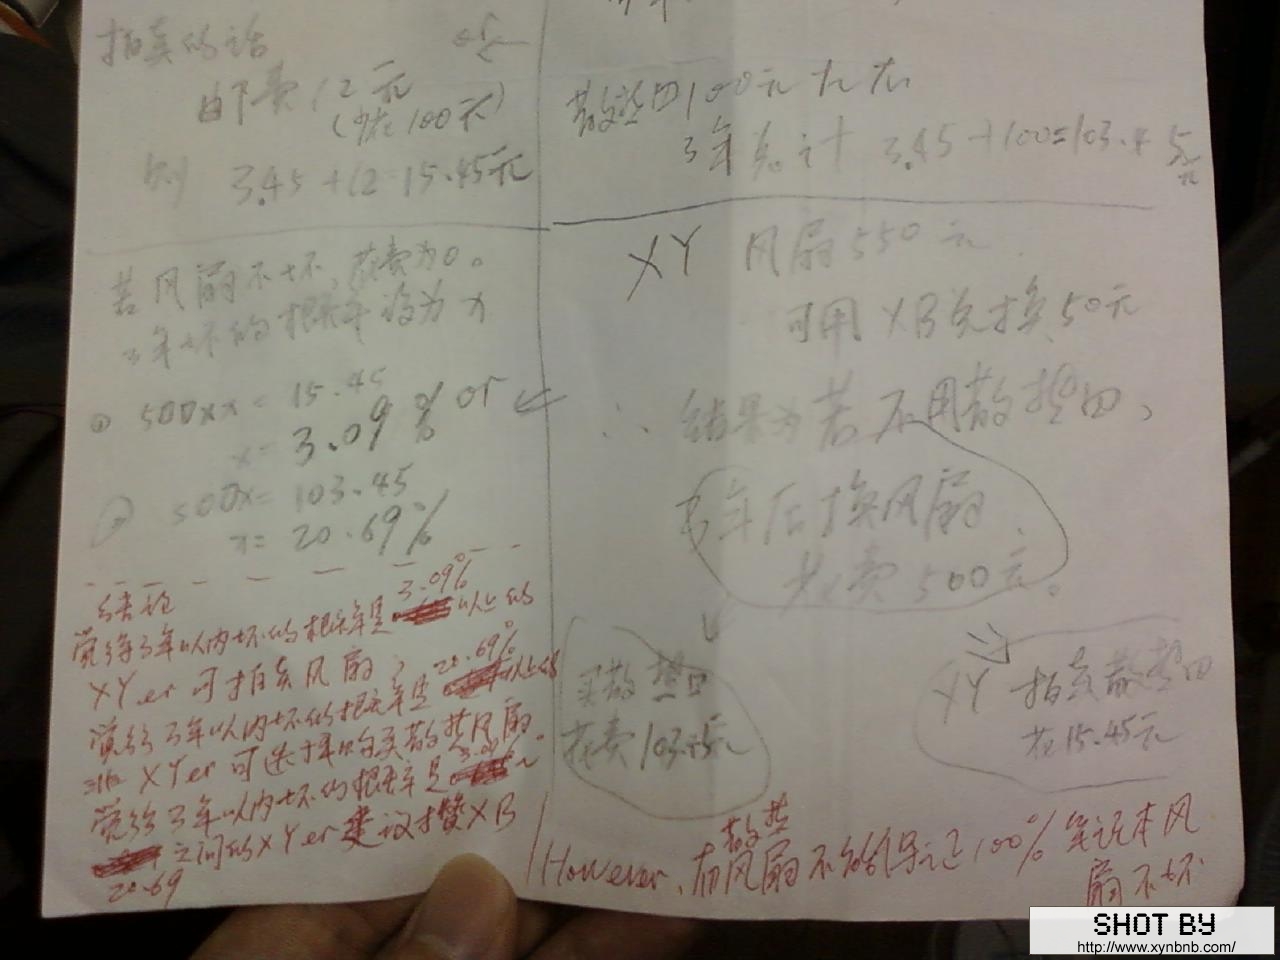 拍卖的话
邮费12元
(少花100元)
则 3.45+12=15.45元
若风扇不坏,花费为0。
3年坏的概率设为x
① 500×x=15.45
x=3.09% or
② 500x=103.45
x=20.69%
散热四100元左右
3年总计 3.45+100=103.45元
XY 风扇550元
可用XB兑换50元
∴结果为若不用散热四,
3年后换风扇
花费500元。
买散热四
花费103.45元
XY 拍卖散热四
花15.45元
结论
3.09%
觉得3年以内坏的概率是 以上的
XYer可拍卖风扇;
20.69%
觉得3年以内坏的概率是 以上的
非XYer可选择购买散热风扇。
3.09%
觉得3年以内坏的概率是 ~
之间的XYer建议攒XB
20.69
However,有散热风扇不能保证100%笔记本风
扇不坏
SHOT BY
http://www.xynbnb.com/